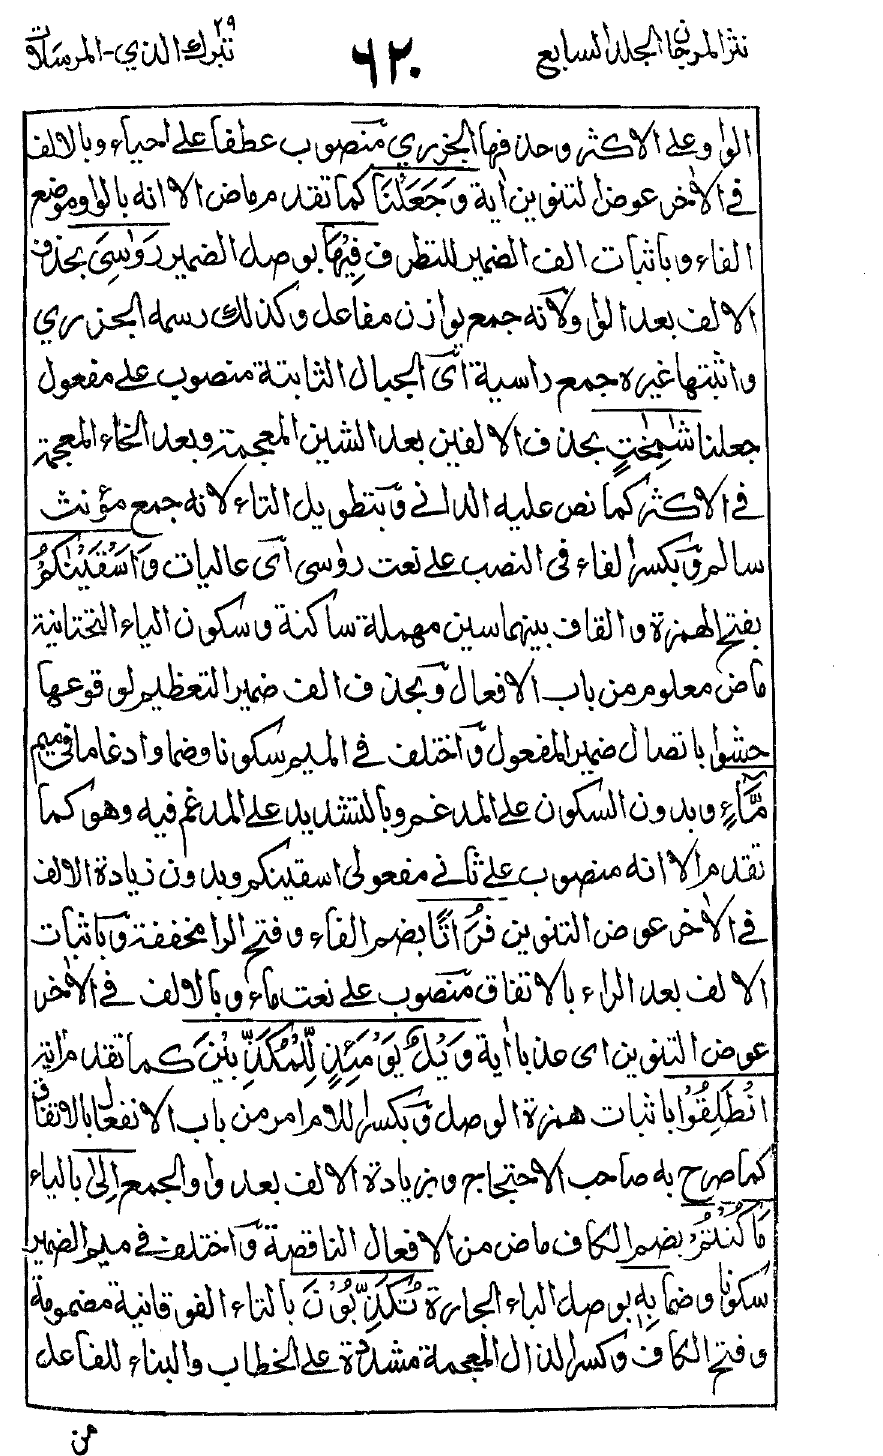 نثر المرجان المجلد السابع
٦٢٠
تبرك الذي-المرسلات
٢٩
الواو على الاكثر وحذفها الجزري منصوب عطفا على احياء وبالالف
في الاٰخر عوض التنوين اٰية وَجَعَلْنَا كما تقدم ماض الا انه بالواو موضع
الفاء وباثبات الف الضمير للتطرف فِيْهَا بوصل الضمير رَوٰسِيَ بحذف
الالف بعد الواو لانه جمع يوازن مفاعل وكذلك رسمه الجزري
واثبتها غيره جمع راسية اى الجبال الثابتة منصوب على مفعول
جعلنا شٰمِخٰتٍ بحذف الالفين بعد الشين المعجمة وبعد الخاء المعجمة
في الاكثر كما نص عليه الداني وبتطويل التاء لانه جمع مؤنث
سالم وبكسر الفاء في النصب على نعت رواسى اى عاليات وَاَسْقَيْنٰكُمْ
بفتح الهمزة والقاف بينهما سين مهملة ساكنة وسكون الياء التحتانية
ماض معلوم من باب الافعال وبحذف الف ضمير التعظيم لوقوعها
حشوا باتصال ضمير المفعول واختلف في الميم سكونا وضما وادغاما في ميم
مَّآءً وبدون السكون على المدغم وبالتشديد على المدغم فيه وهو كما
تقدم الا انه منصوب على ثاني مفعولى اسقينكم وبدون زيادة الالف
في الاٰخر عوض التنوين فُرَاتًا بضم الفاء وفتح الراء مخففة وباثبات
الالف بعد الراء بالاتفاق منصوب على نعت ماء وبالالف في الاٰخر
عوض التنوين اى عذبا اٰية وَيْلٌ يَوْمَئِذٍ لِّلْمُكَذِّبِيْنَ كما تقدم اٰية
انْطَلِقُوْا باثبات همزة الوصل وبكسر اللام امر من باب الانفعال بالاتفاق
كما صرح به صاحب الاحتجاج وبزيادة الالف بعد واو الجمع اِلٰى بالياء
مَا كُنْتُمْ بضم الكاف ماض من الافعال الناقصة واختلف في ميم الضمير
سكونا وضما بِهٖ بوصل الباء الجارة تُكَذِّبُوْنَ بالتاء الفوقانية مضمومة
وفتح الكاف وكسر الذال المعجمة مشددة على الخطاب والبناء للفاعل
من